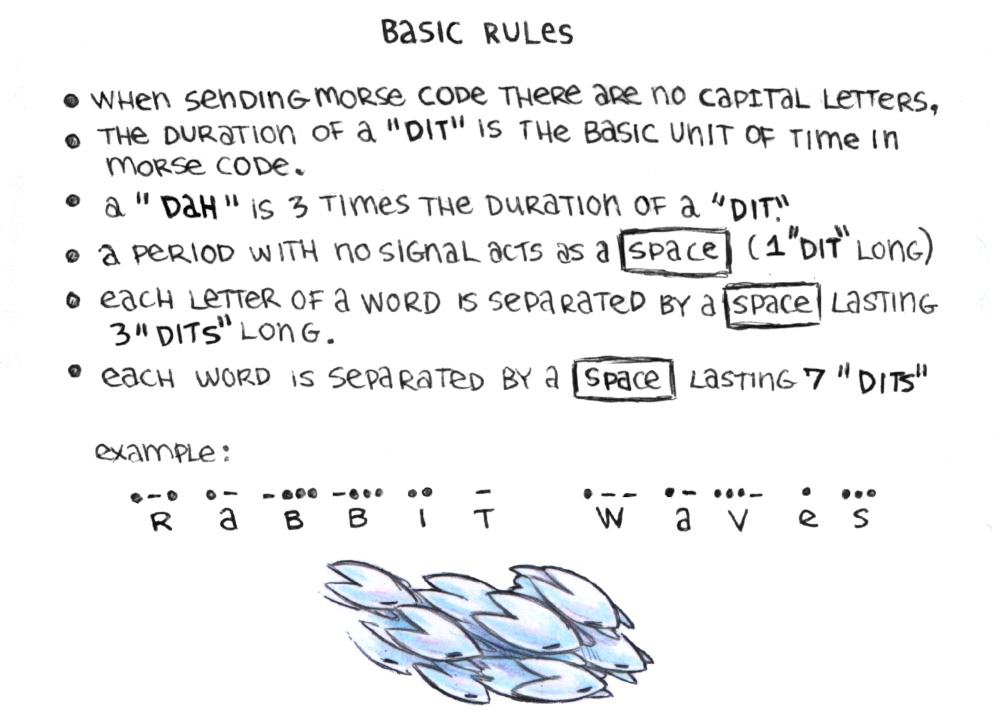 BASIC RULES
• WHEN SENDING MORSE CODE THERE ARE NO CAPITAL LETTERS,
• THE DURATION OF A "DIT" IS THE BASIC UNIT OF TIME IN
MORSE CODE.
• A "DAH" IS 3 TIMES THE DURATION OF A "DIT."
• A PERIOD WITH NO SIGNAL ACTS AS A SPACE (1 "DIT" LONG)
• EACH LETTER OF A WORD IS SEPARATED BY A SPACE LASTING
3 "DITS" LONG.
• EACH WORD IS SEPARATED BY A SPACE LASTING 7 "DITS"
example:
•-• •- -••• -••• •• - •-- •- •••- • •••
R a B B I T W a V e S